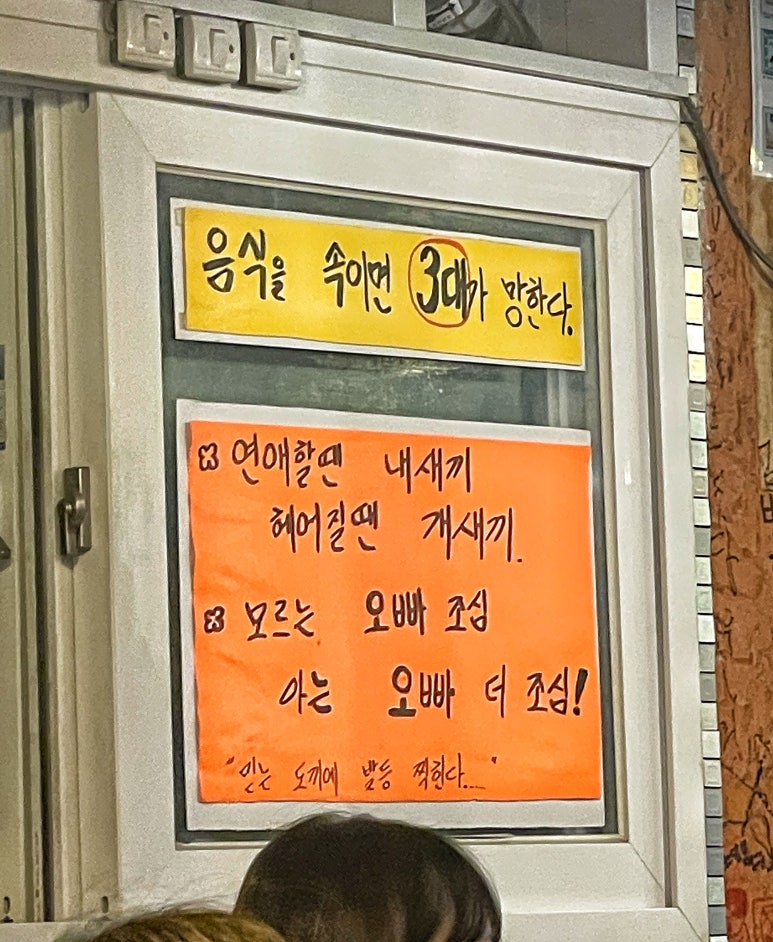 음식을 속이면 3대가 망한다.
연애할땐 내새끼
헤어질땐 개새끼.
모르는 오빠 조심
아는 오빠 더 조심!
"믿는 도끼에 발등 찍힌다..."